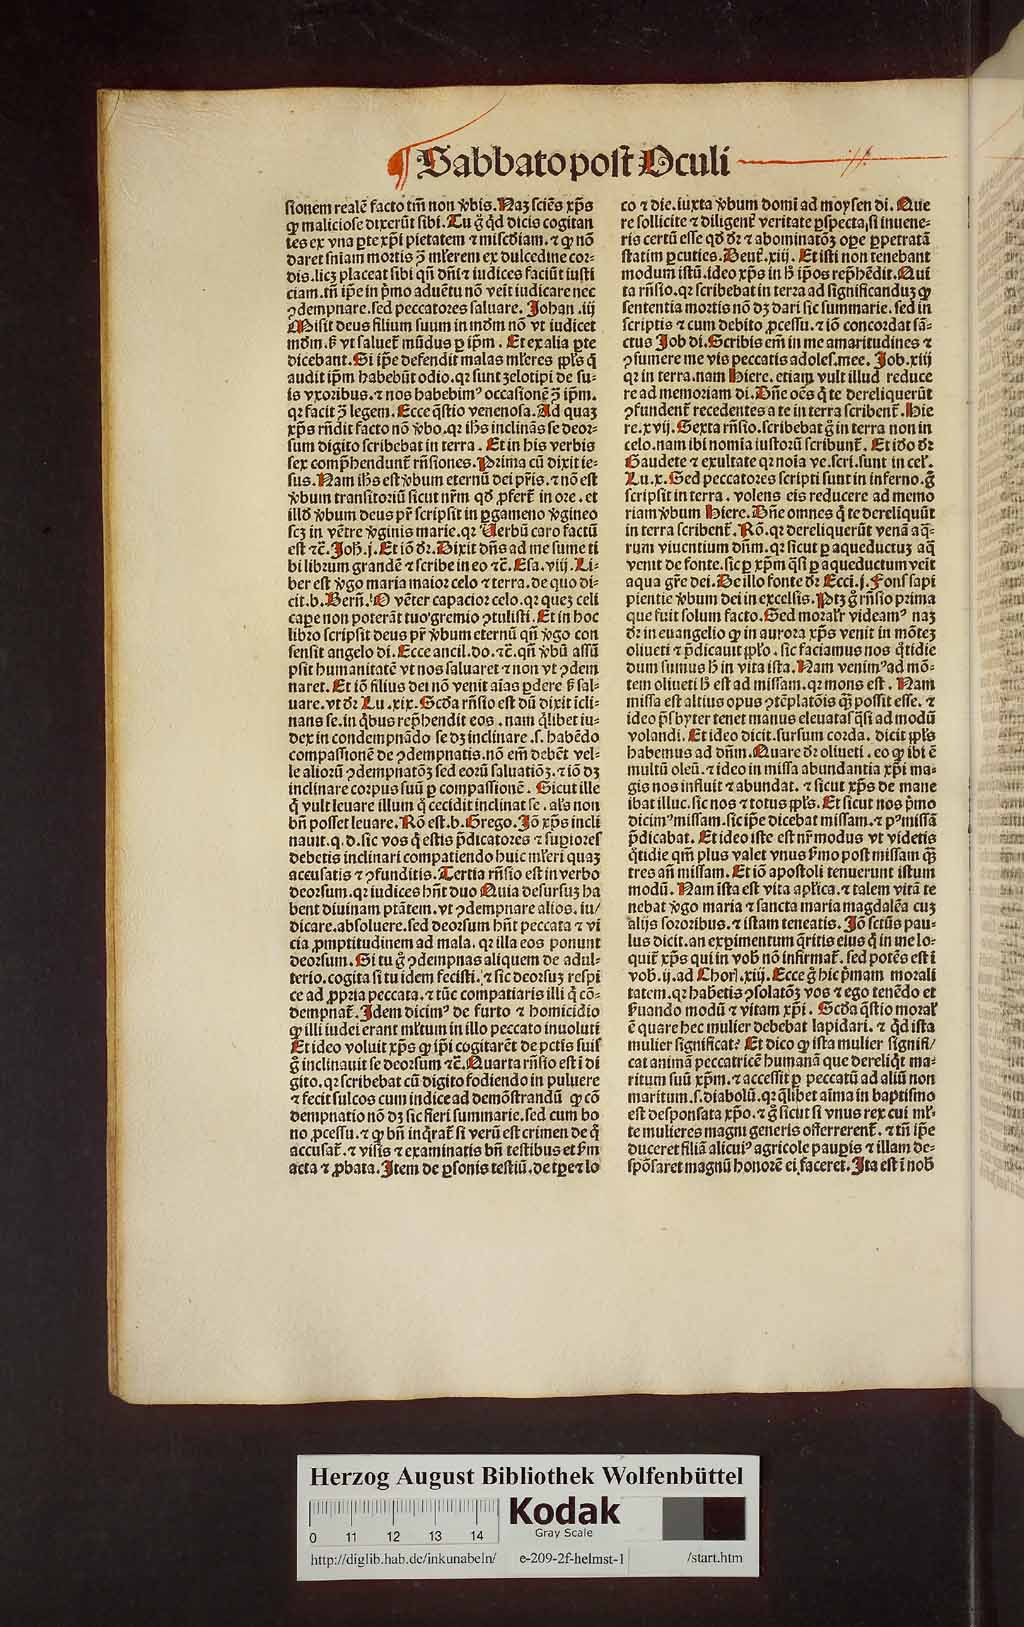 Sabbato post Oculi
sionem realẽ facto tm̃ non v̾bis. Naʒ sciẽs xp̃s
ꝙ maliciose dixerũt sibi. Tu g̃ qͥd dicis cogitan
tes ex vna ꝑte xp̃i pietatem ⁊ misc̃diam. ⁊ ꝙ nõ
daret sniam mortis ꝯ̃ ml̃ierem ex dulcedine cor-
dis. licʒ placeat sibi qñ dñi ⁊ iudices faciũt iusti
ciam. tñ ip̃e in p̃mo aduẽtu nõ veit iudicare nec
ꝯdempnare. sed peccatores saluare. Johan .iij
Misit deus filium suum in mũdm nõ vt iudicet
mũdm. sꝫ vt saluet̃ mũdus ꝑ ip̃m. Et ex alia ꝑte
dicebant. Si ip̃e defendit malas ml̃ieres ppl̃s q̃
audit ip̃m habebũt odio. qꝛ sunt ʒelotipi de su-
is vxoribus. ⁊ nos habebimꝰ occasionẽ ꝯ̃ ip̃m.
qꝛ facit ꝯ̃ legem. Ecce q̃stio venenosa. Ad quaʒ
xp̃s rñdit facto nõ v̾bo. qꝛ ih̃s inclinãs se deor-
sum digito scribebat in terra. Et in his verbis
sex comp̃hendunt̃ rñsiones. Prima cũ dixit ie-
sus. Nam ih̃s est v̾bum eternũ dei pr̃is. ⁊ nõ est
v̾bum transitoriũ sicut nr̃m qd̃ ꝓfert̃ in ore. et
illd̃ v̾bum deus pr̃ scripsit in ꝑgameno v̾gineo
scʒ in vẽtre v̾ginis marie. qꝛ Verbũ caro factũ
est ⁊c̃. Joh̃. j. Et iõ dr̃. Dixit dñs ad me sume ti
bi librum grandẽ ⁊ scribe in eo ⁊c̃. Esa. viij. Li-
ber est v̾go maria maior celo ⁊ terra. de quo di-
cit. b. Berñ. O vẽter capacior celo. qꝛ queʒ celi
cape non poterãt tuo gremio ꝯtulisti. Et in hoc
libro scripsit deus pr̃ v̾bum eternũ qñ v̾go con
sensit angelo di. Ecce ancil. do. ⁊c̃. qñ v̾bũ assũ
psit humanitatẽ vt nos saluaret ⁊ non vt ꝯdem
naret. Et iõ filius dei nõ venit aĩas ꝑdere sꝫ sal-
uare. vt dr̃ Lu. xix. Scd̃a rñsio est dũ dixit icli-
nans se. in qͥbus rep̃hendit eos. nam qͥlibet iu-
dex in condempnãdo se dʒ inclinare .s. habẽdo
compassionẽ de ꝯdempnatis. nõ em̃ debẽt vel-
le aliorũ ꝯdempnatõʒ sed eorũ saluatiõʒ. ⁊ iõ dʒ
inclinare corpus suũ ꝑ compassionẽ. Sicut ille
qͥ vult leuare illum qͥ cecidit inclinat se. al̃s non
bñ posset leuare. Rõ est. b. Grego. Jõ xp̃s incli
nauit. q. d. sic vos qͥ estis p̃dicatores ⁊ suꝑiores
debetis inclinari compatiendo huic ml̃ieri quaʒ
accusatis ⁊ ꝯfunditis. Tertia rñsio est in verbo
deorsum. qꝛ iudices hñt duo Quia desursuʒ ha
bent diuinam ptãtem. vt ꝯdempnare alios. iu/
dicare. absoluere. sed deorsum hñt peccata ⁊ vi
cia ꝓmptitudinem ad mala. qꝛ illa eos ponunt
deorsum. Si tu g̃ ꝯdempnas aliquem de adul-
terio. cogita si tu idem fecisti. ⁊ sic deorsuʒ respi
ce ad ꝓpria peccata. ⁊ tũc compatiaris illi qͥ cõ-
dempnat̃. Jdem dicimꝰ de furto ⁊ homicidio
ꝙ illi iudei erant ml̃tum in illo peccato inuoluti
Et ideo voluit xp̃s ꝙ ip̃i cogitarẽt de pctis suis
g̃ inclinauit se deorsum ⁊c̃. Quarta rñsio est ĩ di
gito. qꝛ scribebat cũ digito fodiendo in puluere
⁊ fecit sulcos cum indice ad demõstrandũ ꝙ cõ
dempnatio nõ dʒ sic fieri summarie. sed cum bo
no ꝓcessu. ⁊ ꝙ bñ inqͥrat̃ si verũ est crimen de q̃
accusat̃. ⁊ visis ⁊ examinatis bñ testibus et fm̃
acta ⁊ ꝓbata. Jtem de ꝑsonis testiũ. de tꝑe ⁊ lo
co ⁊ die. iuxta v̾bum domi ad moysen di. Que
re sollicite ⁊ diligent̃ veritate ꝑspecta, si inuene-
ris certũ esse qd̃ dr̃ ⁊ abominatõʒ oꝑe ꝑpetratã
statim ꝑcuties. Deut̃. xiij. Et isti non tenebant
modum istũ. ideo xp̃s in h̃ ip̃os rep̃hẽdit. Qui
ta rñsio. qꝛ scribebat in terra ad significanduʒ ꝙ
sententia mortis nõ dʒ dari sic summarie. sed in
scriptis ⁊ cum debito ꝓcessu. ⁊ iõ concordat sã-
ctus Job di. Scribis em̃ in me amaritudines ⁊
ꝯsumere me vis peccatis adoles. mee. Job. xiij
qꝛ in terra. nam Hiere. etiam vult illud reduce
re ad memoriam di. Dñe oẽs qͥ te dereliquerũt
ꝯfundent̃ recedentes a te in terra scribent̃. Hie
re. xvij. Sexta rñsio. scribebat g̃ in terra non in
celo. nam ibi nomia iustorũ scribunt̃. Et iđo dr̃
Gaudete ⁊ exultate qꝛ noĩa ve. scri. sunt in cel̃.
Lu. x. Sed peccatores scripti sunt in inferno. g̃
scripsit in terra. volens eis reducere ad memo
riam v̾bum Hiere. Dñe omnes qͥ te dereliquũt
in terra scribent̃. Rõ. qꝛ dereliquerũt venã aq̃-
rum viuentium dñm. qꝛ sicut ꝑ aqueductuʒ aq̃
venit de fonte. sic ꝑ xp̃m q̃si ꝑ aqueductum veit
aqua gr̃e dei. De illo fonte dr̃ Ecci. j. Fons sapi
pientie v̾bum dei in excelsis. Ptʒ g̃ rñsio prima
que fuit solum facto. Sed moralr̃ videamꝰ naʒ
dr̃ in euangelio ꝙ in aurora xp̃s venit in mõteʒ
oliueti ⁊ p̃dicauit ppl̃o. sic faciamus nos qͥtidie
dum sumus h̃ in vita ista. Nam venimꝰ ad mõ-
tem oliueti h̃ est ad missam. qꝛ mons est. Nam
missa est altius opus ꝯtẽplatõis qʒ possit esse. ⁊
ideo p̃sbyter tenet manus eleuatas q̃si ad modũ
volandi. Et ideo dicit. sursum corda. dicit ppl̃s
habemus ad dñm. Quare dr̃ oliueti. eo ꝙ ibi ẽ
multũ oleũ. ⁊ ideo in missa abundantia xp̃i ma-
gis nos influit ⁊ abundat. ⁊ sicut xp̃s de mane
ibat illuc. sic nos ⁊ totus ppl̃s. Et sicut nos p̃mo
dicimꝰ missam. sic ip̃e dicebat missam. ⁊ pꝰ missã
p̃dicabat. Et ideo iste est nr̃ modus vt videtis
qͥtidie qm̃ plus valet vnus s̾mo post missam qʒ̃
tres añ missam. Et iõ apostoli tenuerunt istum
modũ. Nam ista est vita apl̃ica. ⁊ talem vitã te
nebat v̾go maria ⁊ sancta maria magdalẽa cuʒ
alijs sororibus. ⁊ istam teneatis. Jõ sctũs pau-
lus dicit. an exꝑimentum q̃ritis eius qͥ in me lo-
quit̃ xp̃s qui in vob̃ nõ infirmat̃. sed potẽs est ĩ
vob̃. ij. ad Chor̃. xiij. Ecce g̃ hic p̃mam morali
tatem. qꝛ habetis ꝯsolatõʒ vos ⁊ ego tenẽdo et
s̾uando modũ ⁊ vitam xp̃i. Scd̃a q̃stio moral̃
ẽ quare hec mulier debebat lapidari. ⁊ qͥd ista
mulier significat? Et dico ꝙ ista mulier signifi/
cat animã peccatricẽ humanã que dereliqͥt ma-
ritum suũ xp̃m. ⁊ accessit ꝑ peccatũ ad aliũ non
maritum .s. diabolũ. qꝛ qͥlibet aĩma in baptismo
est desponsata xp̃o. ⁊ g̃ sicut si vnus rex cui ml̃-
te mulieres magni generis offerrerent̃. ⁊ tñ ip̃e
duceret filiã alicuiꝰ agricole pauꝑis ⁊ illam de-
spõsaret magnũ honorẽ ei faceret. Jta est ĩ nob̃
Herzog August Bibliothek Wolfenbüttel
Kodak
Gray Scale
0 11 12 13 14
http://diglib.hab.de/inkunabeln/ e-209-2f-helmst-1 /start.htm